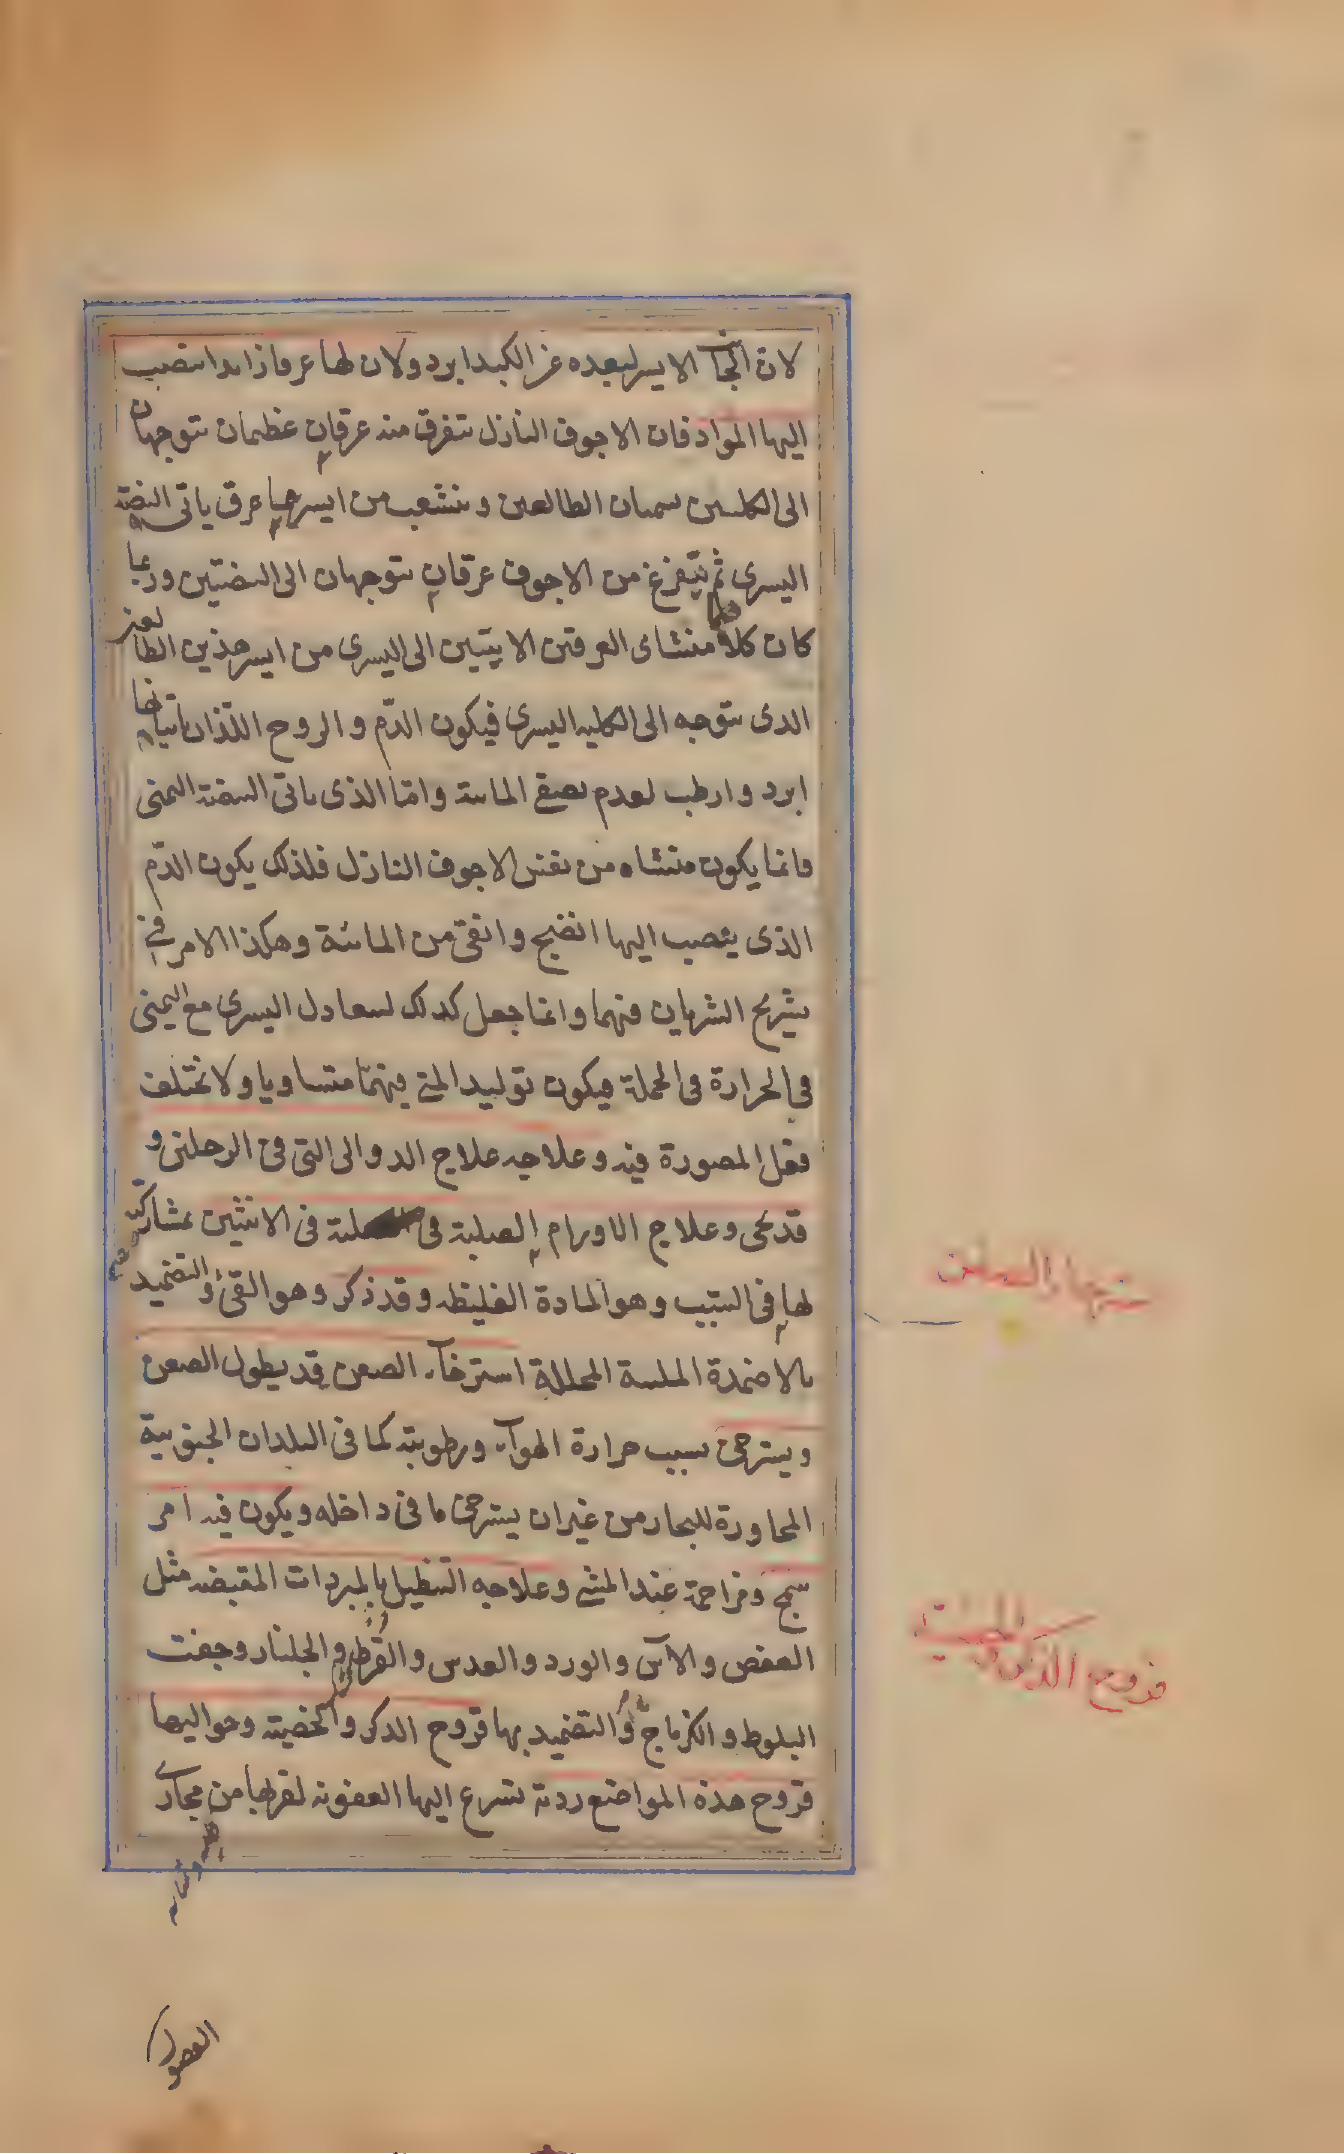 لان الجانب الايسر لبعده عن الكبد ابرد ولان لها عرقا زايدا تنصب
اليها المواد فان الاجوف النازل يتفرق منه عرقان عظيمان يتوجهان
الى الكليتين يسميان الطالعين و يتشعب من ايسرهما عرق ياتى البيضة
اليسرى ثم يتفرع من الاجوف عرقان يتوجهان الى البيضتين وربما
كان كلا منشاى العرقين الاتيتين الى اليسرى من ايسر هذين الطالعين
الذى يتوجه الى الكلية اليسرى فيكون الدّم و الروح اللّذان ياتيانها
ابرد و ارطب لعدم تصفى المائية و امّا الذى ياتى البيضة اليمنى
فانما يكون منشاه من نفس الاجوف النازل فلذلك يكون الدّم
الذى ينصب اليها انضج و انقى من المائية و هكذا الامر فى
تشريح الشريان فيهما و انما جعل كذلك ليتعادل اليسرى مع اليمنى
فى الحرارة فى الجملة فيكون توليد المنى فيهما متساويا و لا تختلف
فعل المصورة فيه و علاجه علاج الدوالى التى فى الرجلين و
قد يجى و علاج الاورام الصلبة فى الانثيين بمشاركته
لها فى السّبب و هو المادة الغليظه و قد ذكر و هو القئ و التضميد
بالاضمدة الملينة المحللة استرخآء الصفن قد يطول الصفن
و يسترخى بسبب حرارة الهوآء و رطوبته كما فى البلدان الجنوبية
المجاورة للبحار من غيران يسترخى ما فى داخله و يكون فيه امر
سمج و مزاحمة عند المشى و علاجه التنطيل بالمبردات المقبضه مثل
العفص و الآس و الورد و العدس و القرط و الجلنار و جفت
البلوط و الكزمازج و التضميد بها قروح الذكر و الخصية و حواليها
قروح هذه المواضع ردية تسرع اليها العفونه لقربها من مجارى
استرخاء الصفن
قروح الذكر و الخصية
الفضول